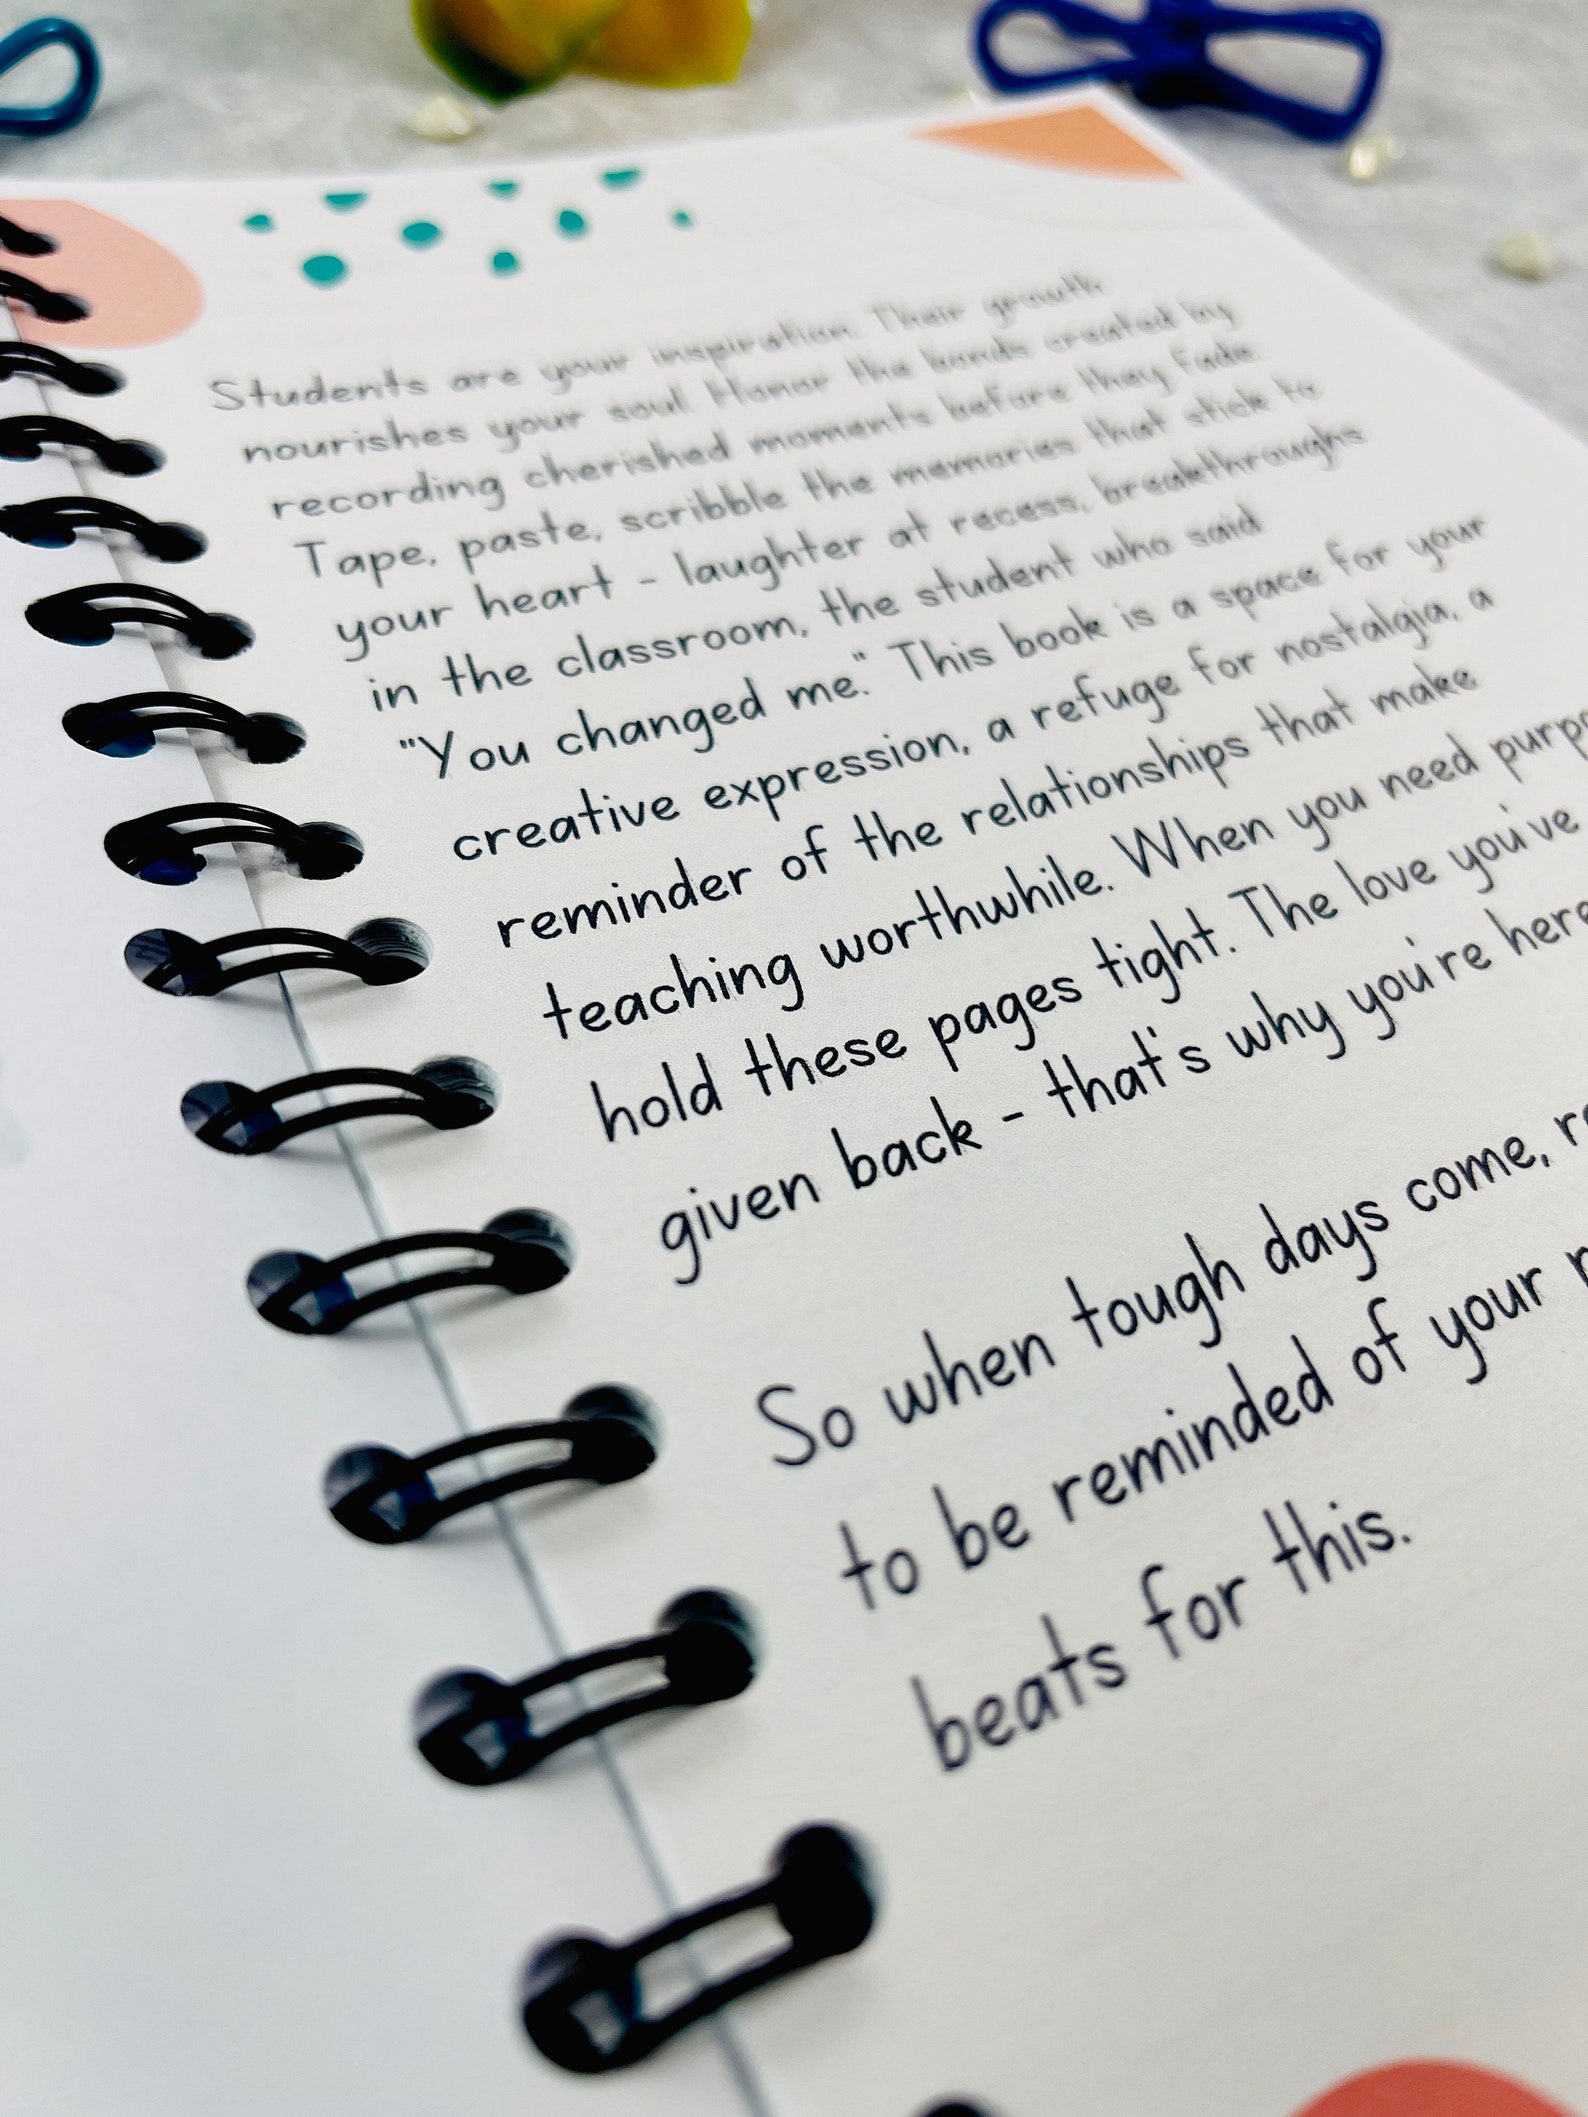 Students are your inspiration. Their growth
nourishes your soul. Honor the bonds created by
recording cherished moments before they fade.
Tape, paste, scribble the memories that stick to
your heart - laughter at recess, breakthroughs
in the classroom, the student who said
"You changed me." This book is a space for your
creative expression, a refuge for nostalgia, a
reminder of the relationships that make
teaching worthwhile. When you need
hold these pages tight. The love you've
given back - that's why you're
So when tough days come,
to be reminded of your
beats for this.